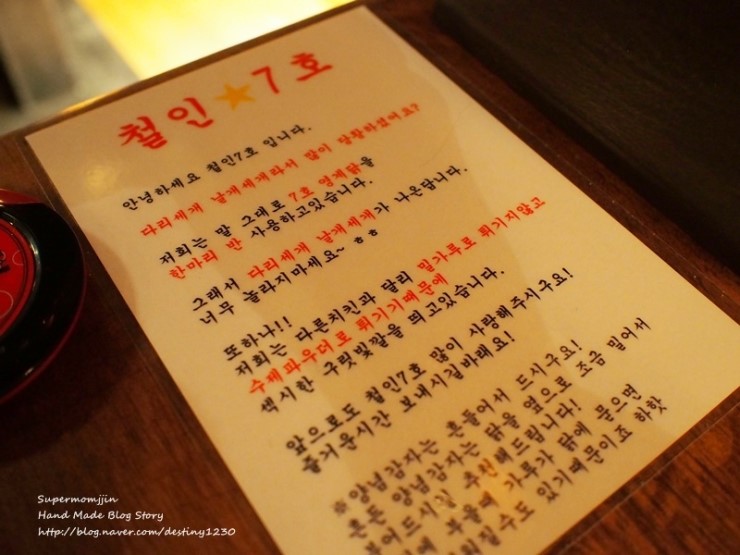 철인★7호
안녕하세요 철인7호 입니다.
다리세개 날개세개라서 많이 당황하셨어요?
저희는 말 그대로 7호 영계닭을
한마리 반 사용하고있습니다.
그래서 다리세개 날개세개가 나온답니다.
너무 놀라지마세요~ ㅎㅎ
또하나!!
저희는 다른치킨과 달리 밀가루로 튀기지않고
수제파우더로 튀기기때문에
섹시한 구릿빛깔을 띄고있습니다.
앞으로도 철인7호 많이 사랑해주시구요!
즐거운시간 보내시길바래요!
※양념감자는 흔들어서 드시구요!
흔든 양념감자는 닭을 옆으로 조금 밀어서
부어드시길 추천해드립니다!
부울때 가루가 닭에 묻으면
질수도 있기때문이죠 하핫
Supermomjjin
Hand Made Blog Story
http://blog.naver.com/destiny1230